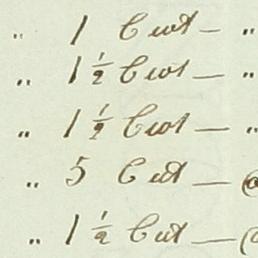 " 1 Cwt — "
" 1 1/2 Cwt — "
" 1 1/2 Cwt — "
" 5 Cwt —
" 1 1/2 Cwt —